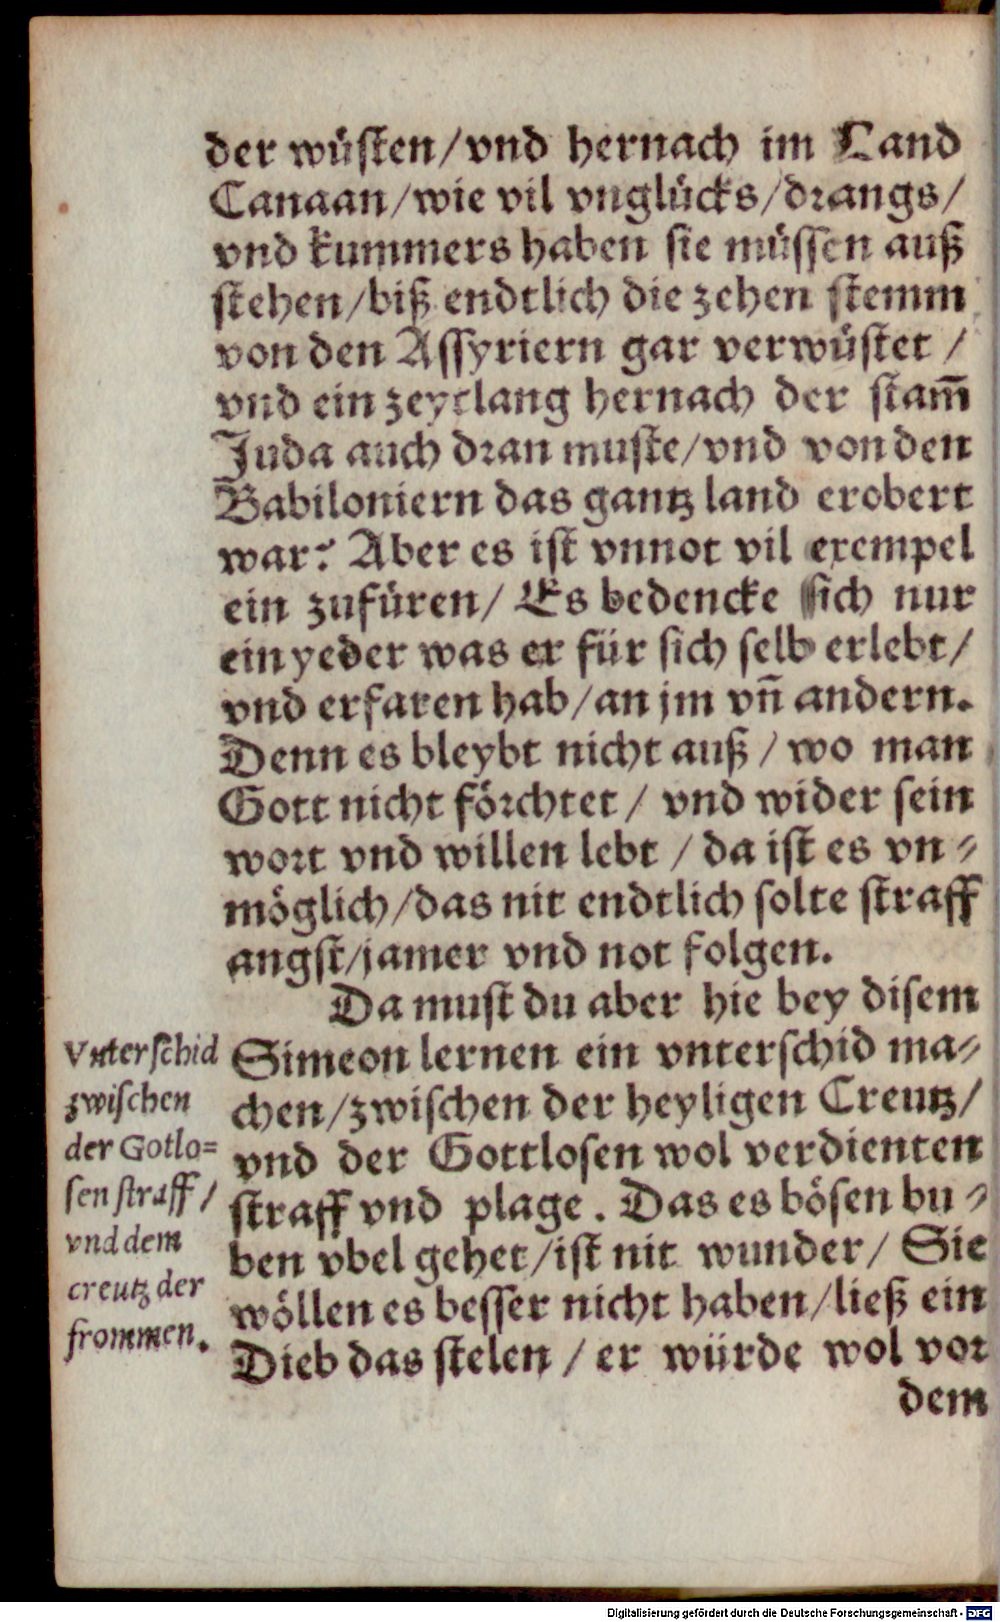 der wüsten/vnd hernach im Land
Canaan/wie vil vnglücks/drangs/
vnd kummers haben sie müssen auß
stehen/biß endtlich die zehen stemm
von den Assyriern gar verwüstet /
vnd ein zeytlang hernach der stam̄
Juda auch dran muste/vnd von den
Babiloniern das gantz land erobert
war? Aber es ist vnnot vil exempel
ein zufüren/ Es bedencke sich nur
ein yeder was er für sich selb erlebt/
vnd erfaren hab/an jm vn̄ andern.
Denn es bleybt nicht auß / wo man
Gott nicht förchtet / vnd wider sein
wort vnd willen lebt / da ist es vn⸗
möglich/das nit endtlich solte straff
angst/jamer vnd not folgen.
Da must du aber hie bey disem
Simeon lernen ein vnterschid ma⸗
chen/zwischen der heyligen Creutz/
vnd der Gottlosen wol verdienten
straff vnd plage. Das es bösen bu⸗
ben vbel gehet/ist nit wunder/ Sie
wöllen es besser nicht haben/ließ ein
Dieb das stelen / er würde wol vor
dem
Vnterschid
zwischen
der Gotlo=
sen straff /
vnd dem
creutz der
frommen.
Digitalisierung gefördert durch die Deutsche Forschungsgemeinschaft - DFG